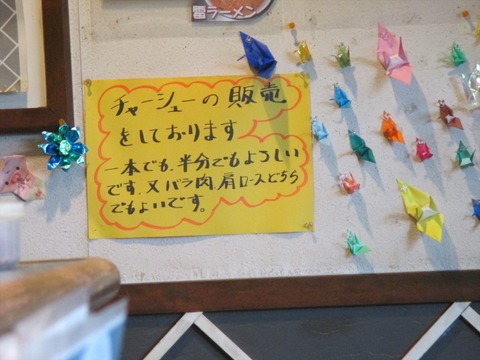 雷ラーメン
チャーシューの販売
をしております
一本でも、半分でもよろしい
です。又バラ肉、肩ロースどちら
でもよいです。